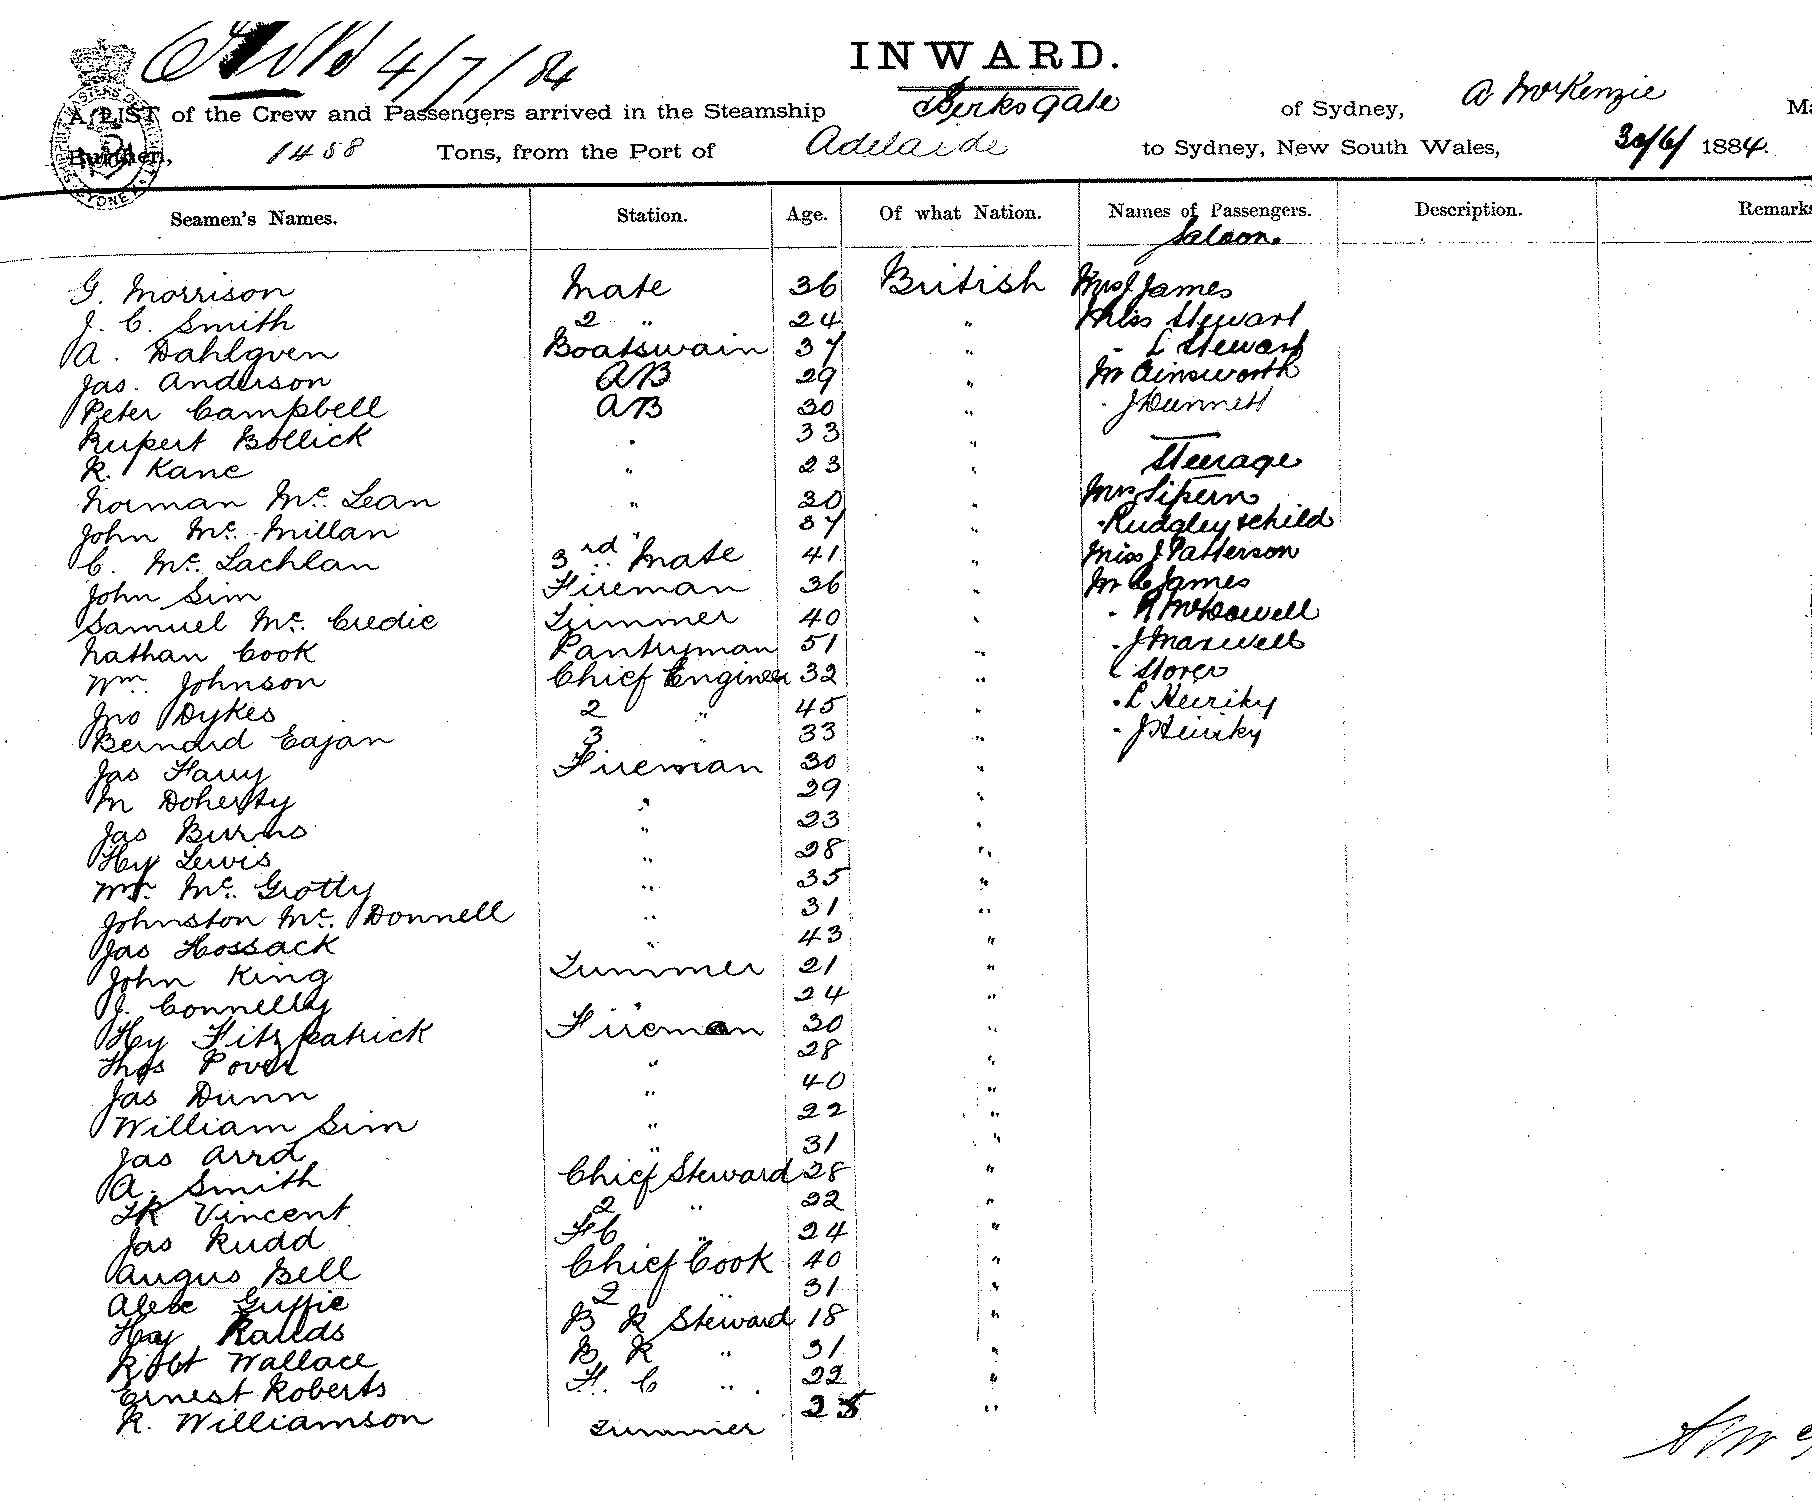 4/7/84
INWARD.
A LIST of the Crew and Passengers arrived in the Steamship Berksgate of Sydney, A McKenzie Ma
Burthen, 1458 Tons, from the Port of Adelaide to Sydney, New South Wales, 30/6/ 1884.
Seamen's Names. Station. Age. Of what Nation. Names of Passengers. Description. Remarks
Saloon.
G. Morrison Mate 36 British Mrs J James
J. C. Smith 2 " 24 " Miss Stewart
A. Dahlgven Boatswain 37 " " L Stewart
Jas. Anderson AB 29 " Mr Ainsworth
Peter Campbell AB 30 " " J Dunnett
Rupert Bollick " 33 "
R. Kane " 23 " Steerage
Norman Mc. Lean " 30 " Mrs Sipern
John Mc. Millan " 37 " " Rudgley & child
C. Mc. Lachlan 3rd Mate 41 " Miss J Patterson
John Sim Fireman 36 " Mr C James
Samuel Mc. Credie Trimmer 40 " "
Nathan Cook Pantryman 51 " " J Maxwell
Wm. Johnson Chief Engineer 32 " C Storer
Jno Dykes 2 " 45 " " L Heiriky
Bernard Eajan 3 " 33 " " J Heiriky
Jas Harry Fireman 30 "
M Doherty " 29 "
Jas Burns " 23 "
Hy Lewis " 28 "
Wm. Mc. Grotty " 35 "
Johnston Mc. Donnell " 31 "
Jas Hossack " 43 "
John King Trimmer 21 "
J. Connelly " 24 "
Hy Fitzpatrick Fireman 30 "
Thos Power " 28 "
Jas Dunn " 40 "
William Sim " 22 "
Jas Arrd " 31 "
A. Smith Chief Steward 28 "
Vincent 2 " 22 "
Jas Rudd F C " 24 "
Angus Bell Chief Cook 40 "
Guffie 2 " 31 "
Hy Rands B R Steward 18 "
Robt Wallace B R " 31 "
Ernest Roberts F. C " 22 "
R. Williamson Trimmer 25 "